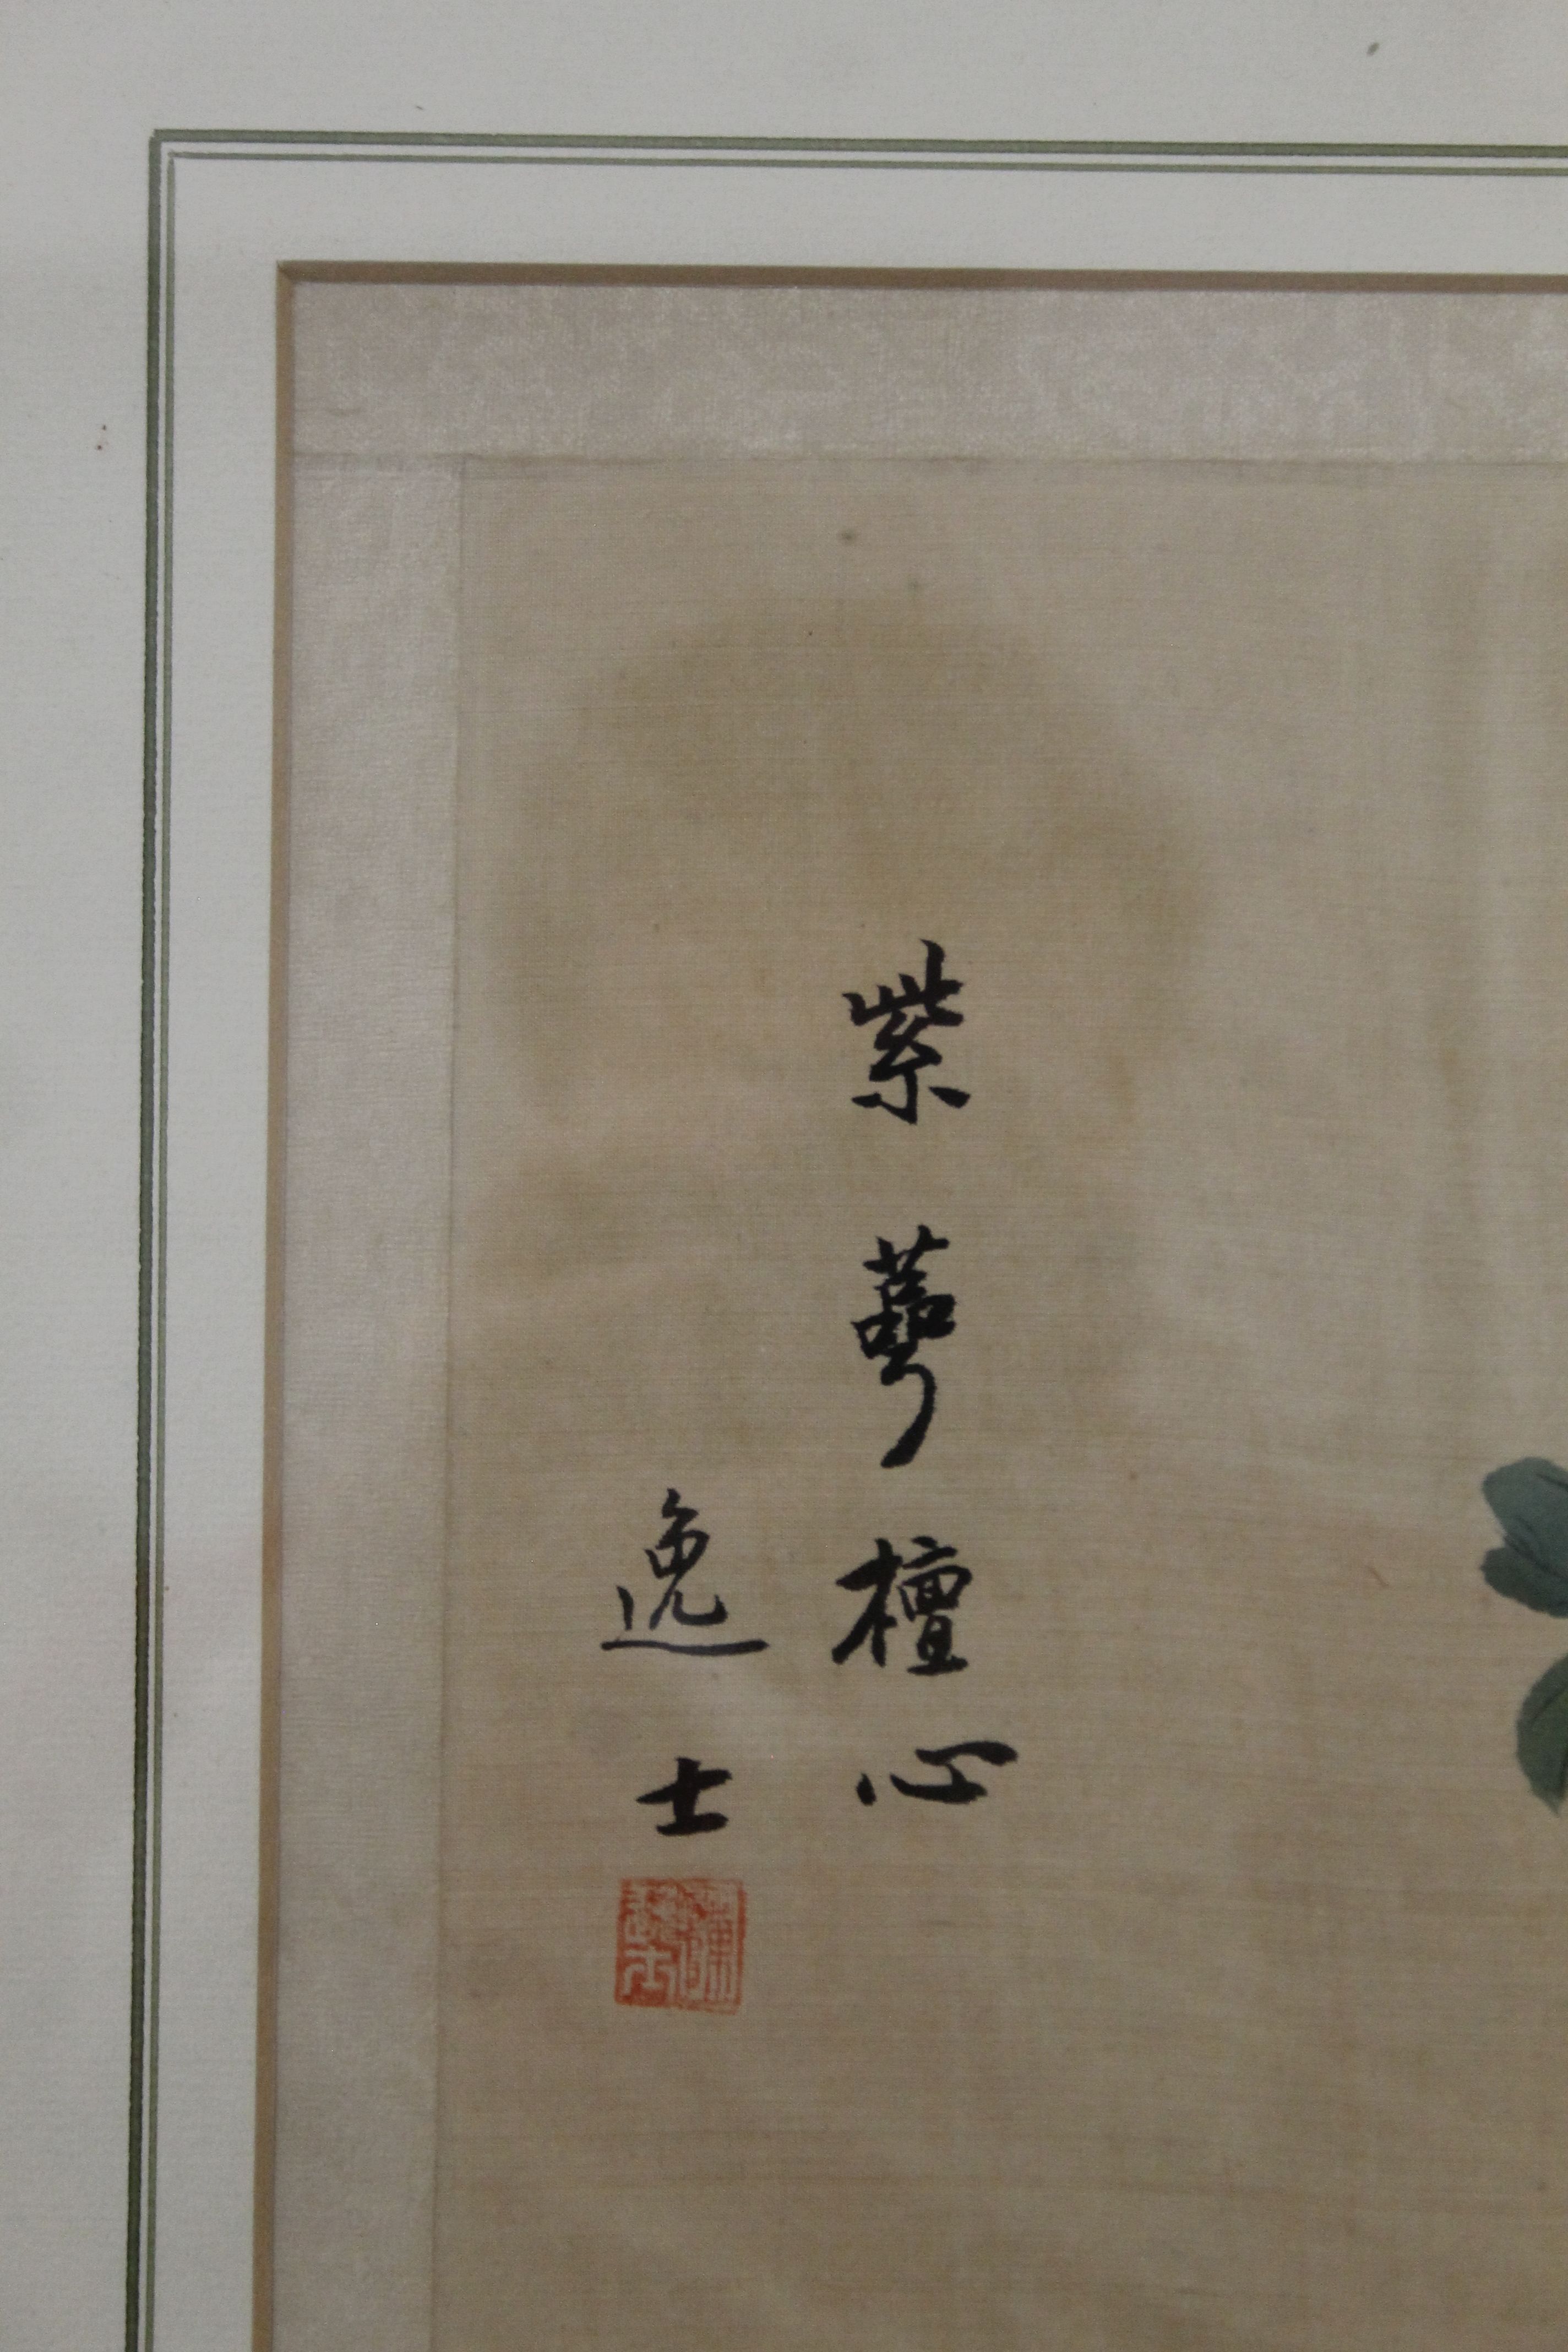 紫萼檀心
逸士